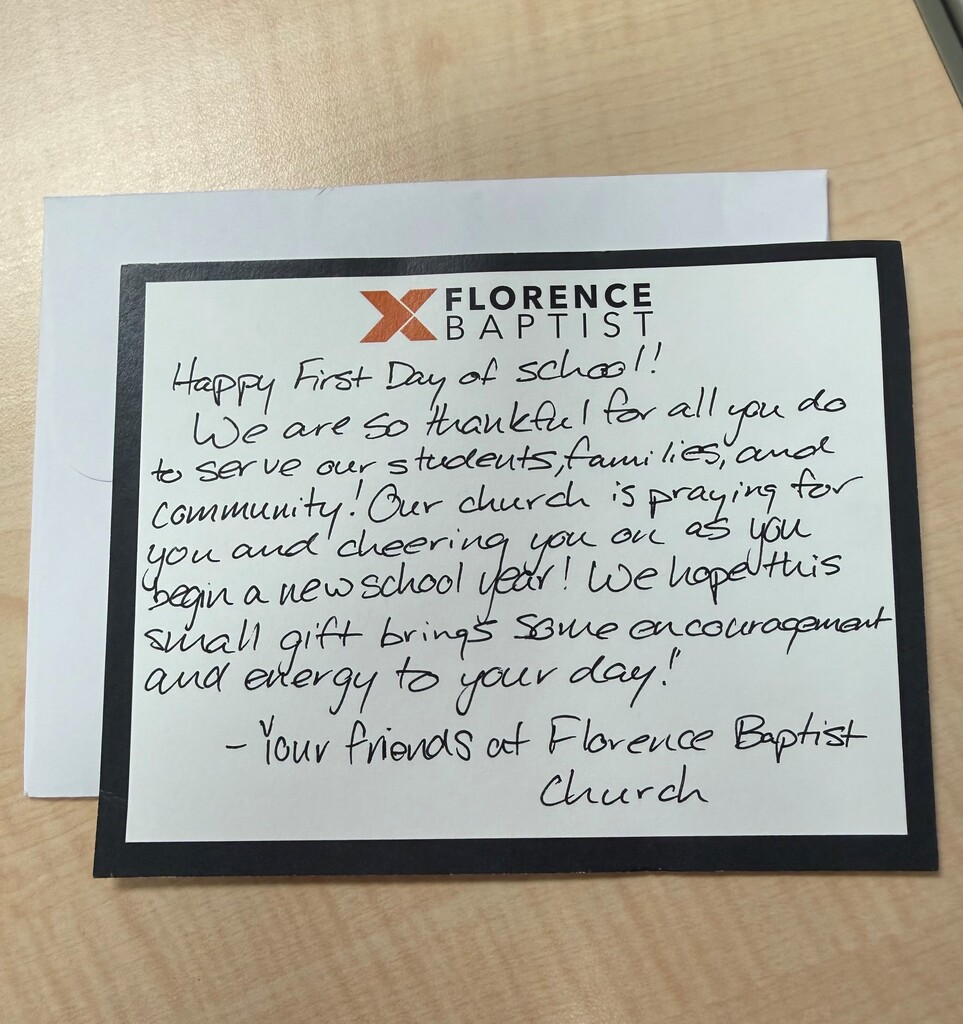 FLORENCE
BAPTIST
Happy First Day of school!
We are so thankful for all you do
to serve our students, families, and
community! Our church is praying for
you and cheering you on as you
begin a new school year! We hope this
small gift brings some encouragement
and energy to your day!
- Your friends at Florence Baptist
Church